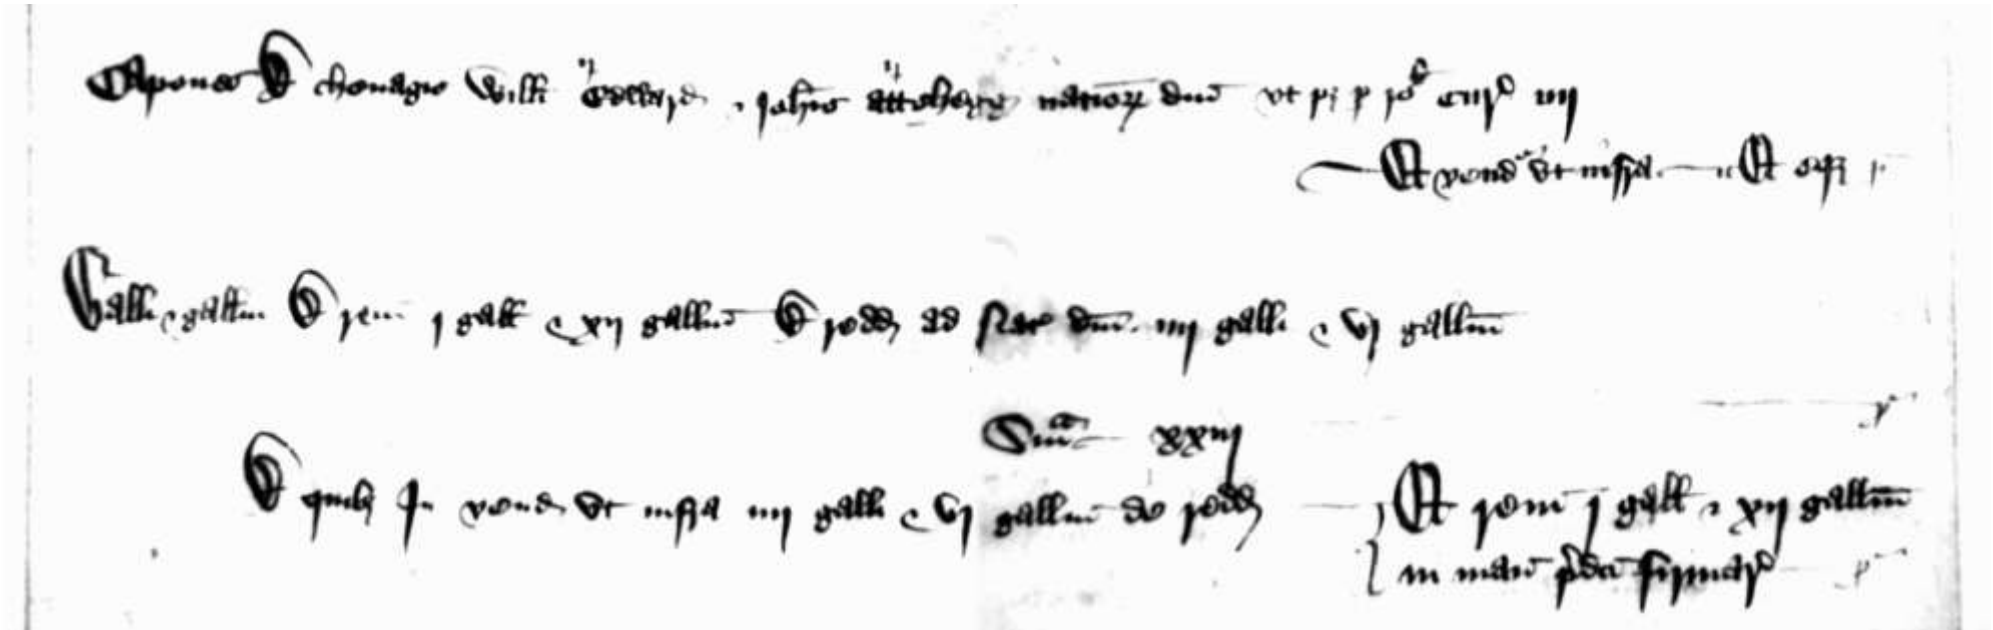 Capones De chevagio Willi Edward , Johis atteherne nativor dni ut pz p ro cur iiij
Et vend ut infra Et eqz
Galli & gallin De rem j gall & xij gallin De redd ad dni iiij galli & vj gallin
Sma xxiij
De quibz In vend ut infra iiij galli & vj gallin de redd Et rem j gall & xij gallin
in manu pdci firmar